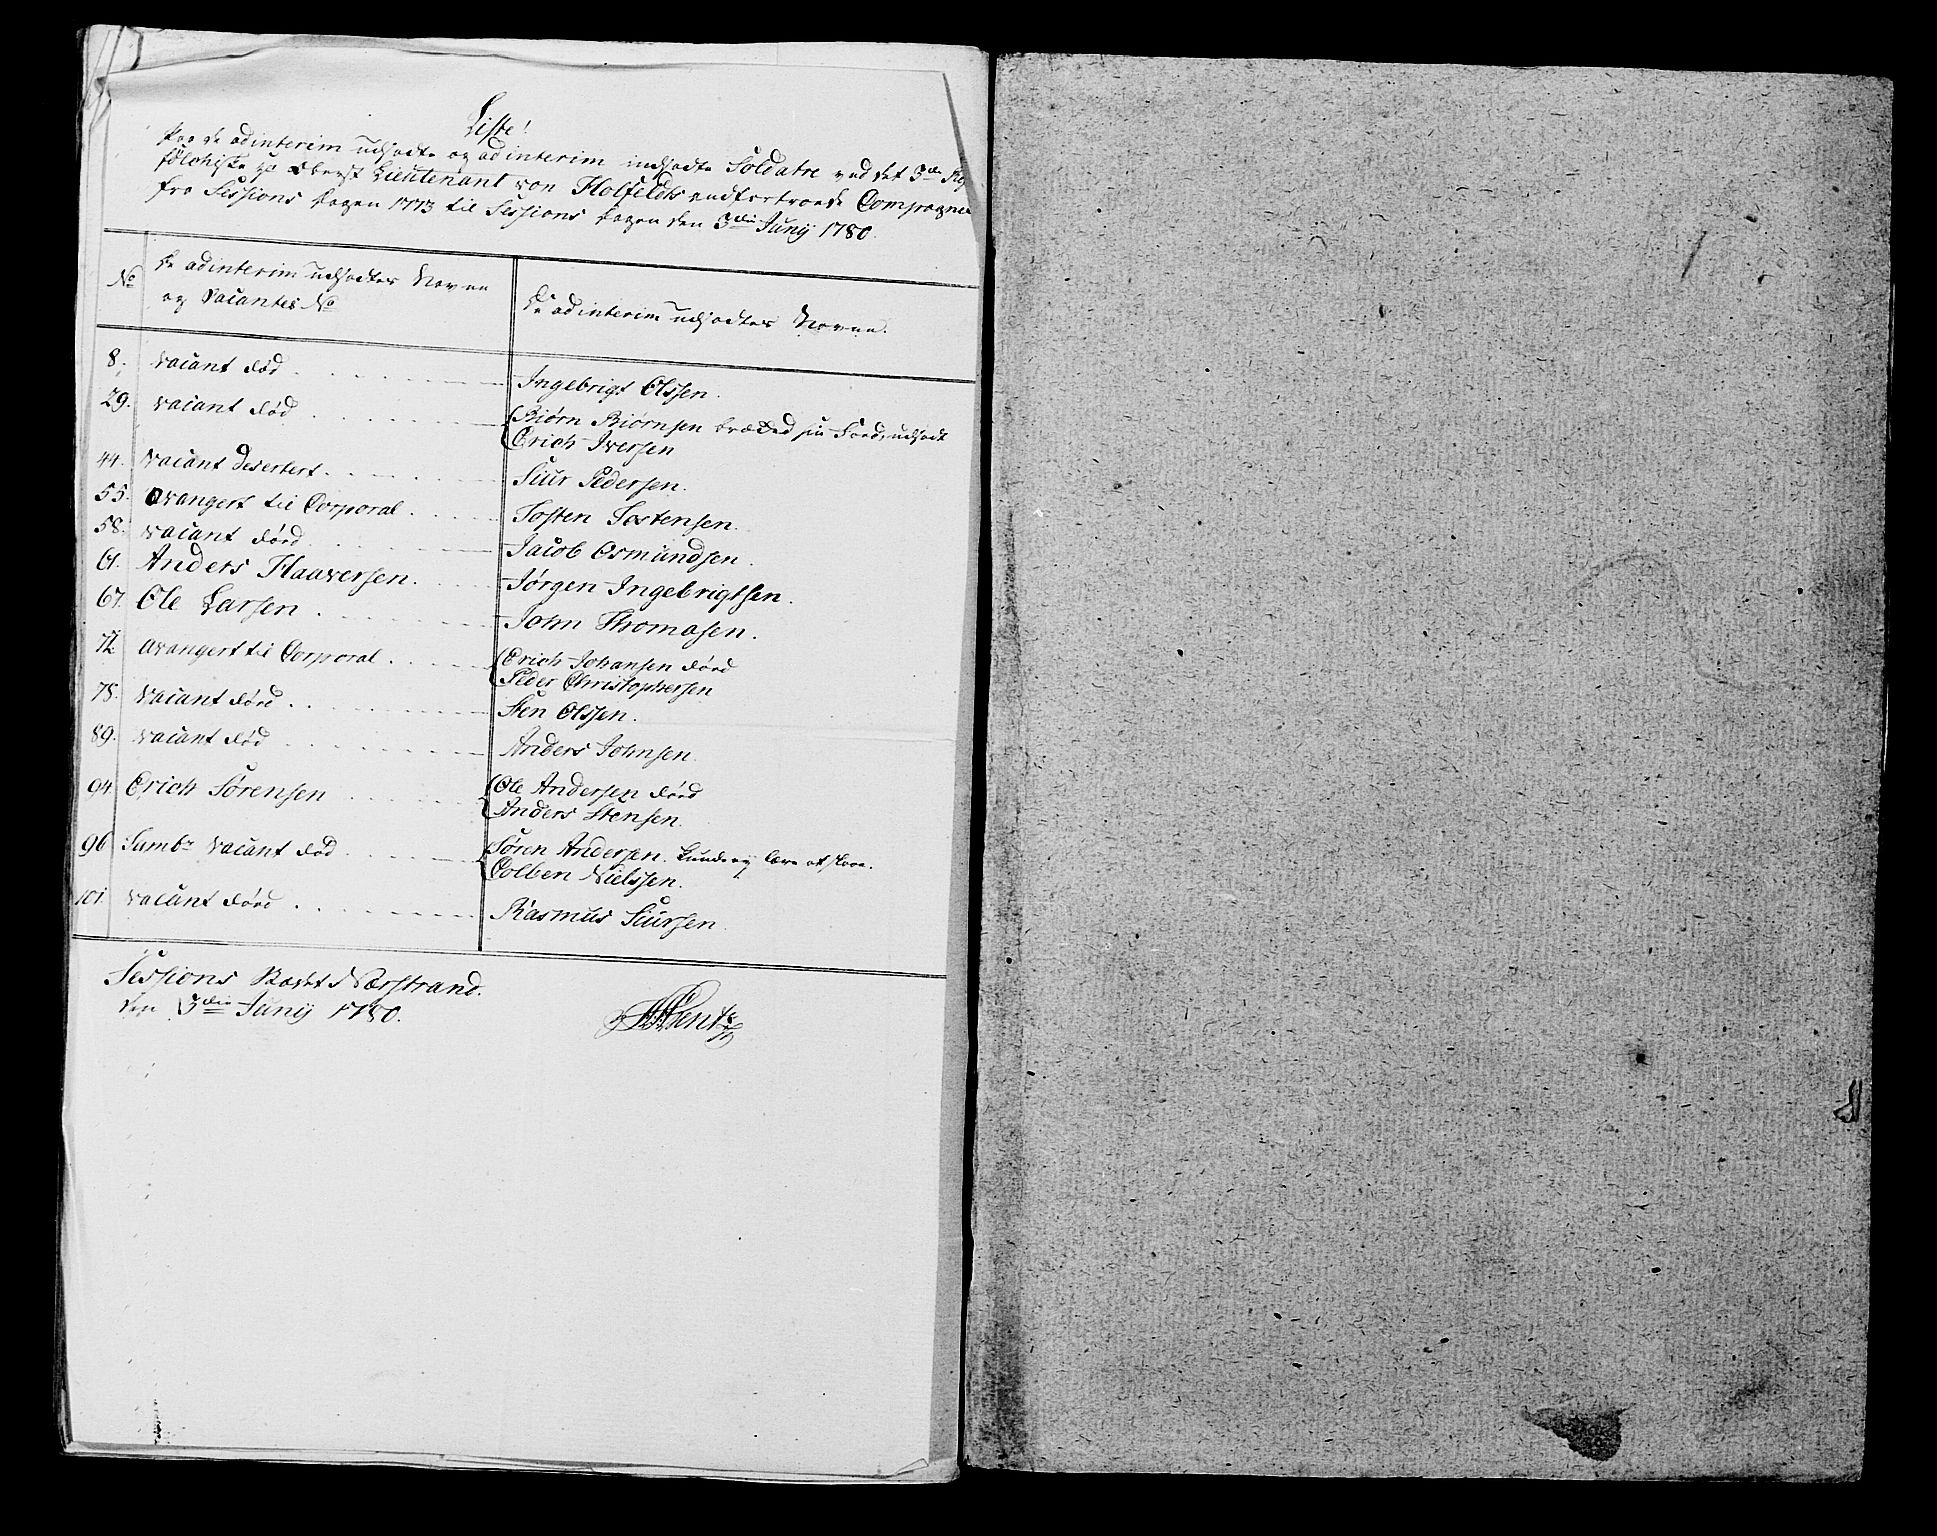 Liste!
Paa de adinterim udsatte og adinterim indsatte Soldatre ved det 3die
Oberst Lieutenant von Holfeldts anfortroede Compagnie
fra Sessions dagen 1773 til Sessions dagen den 3die Junij 1780.
No
De adinterim udsattes Navne
og Vacantes No
De adinterim udsattes Navne.
8. vacant død Ingebrigt Olssen.
29. vacant død Biørn Biørnsen brækked sin Foed, udsadt
Erich Iversen
44. vacant Desertert. Siur Pedersen.
55. avangert til Corporal Tosten Tostensen.
58. vacant død Jacob Osmundsen.
61. Anders Haaversen. Jørgen Ingebrigtsen.
67. Ole Larsen John Thomasen.
72. avangert til Corporal Erich Johansen død
Peder Christophersen
78. vacant død Sten Olssen.
89. vacant død Anders Johnsen.
94. Erich Sørensen Ole Andersen død
Anders Stensen.
96 Tambr vacant død Søren Andersen. kunde ej lære at slaae.
Colben Nielssen.
101. vacant død Rasmus Siursen.
Sessions Stædet Nærstrand.
den 3die Junij 1780.